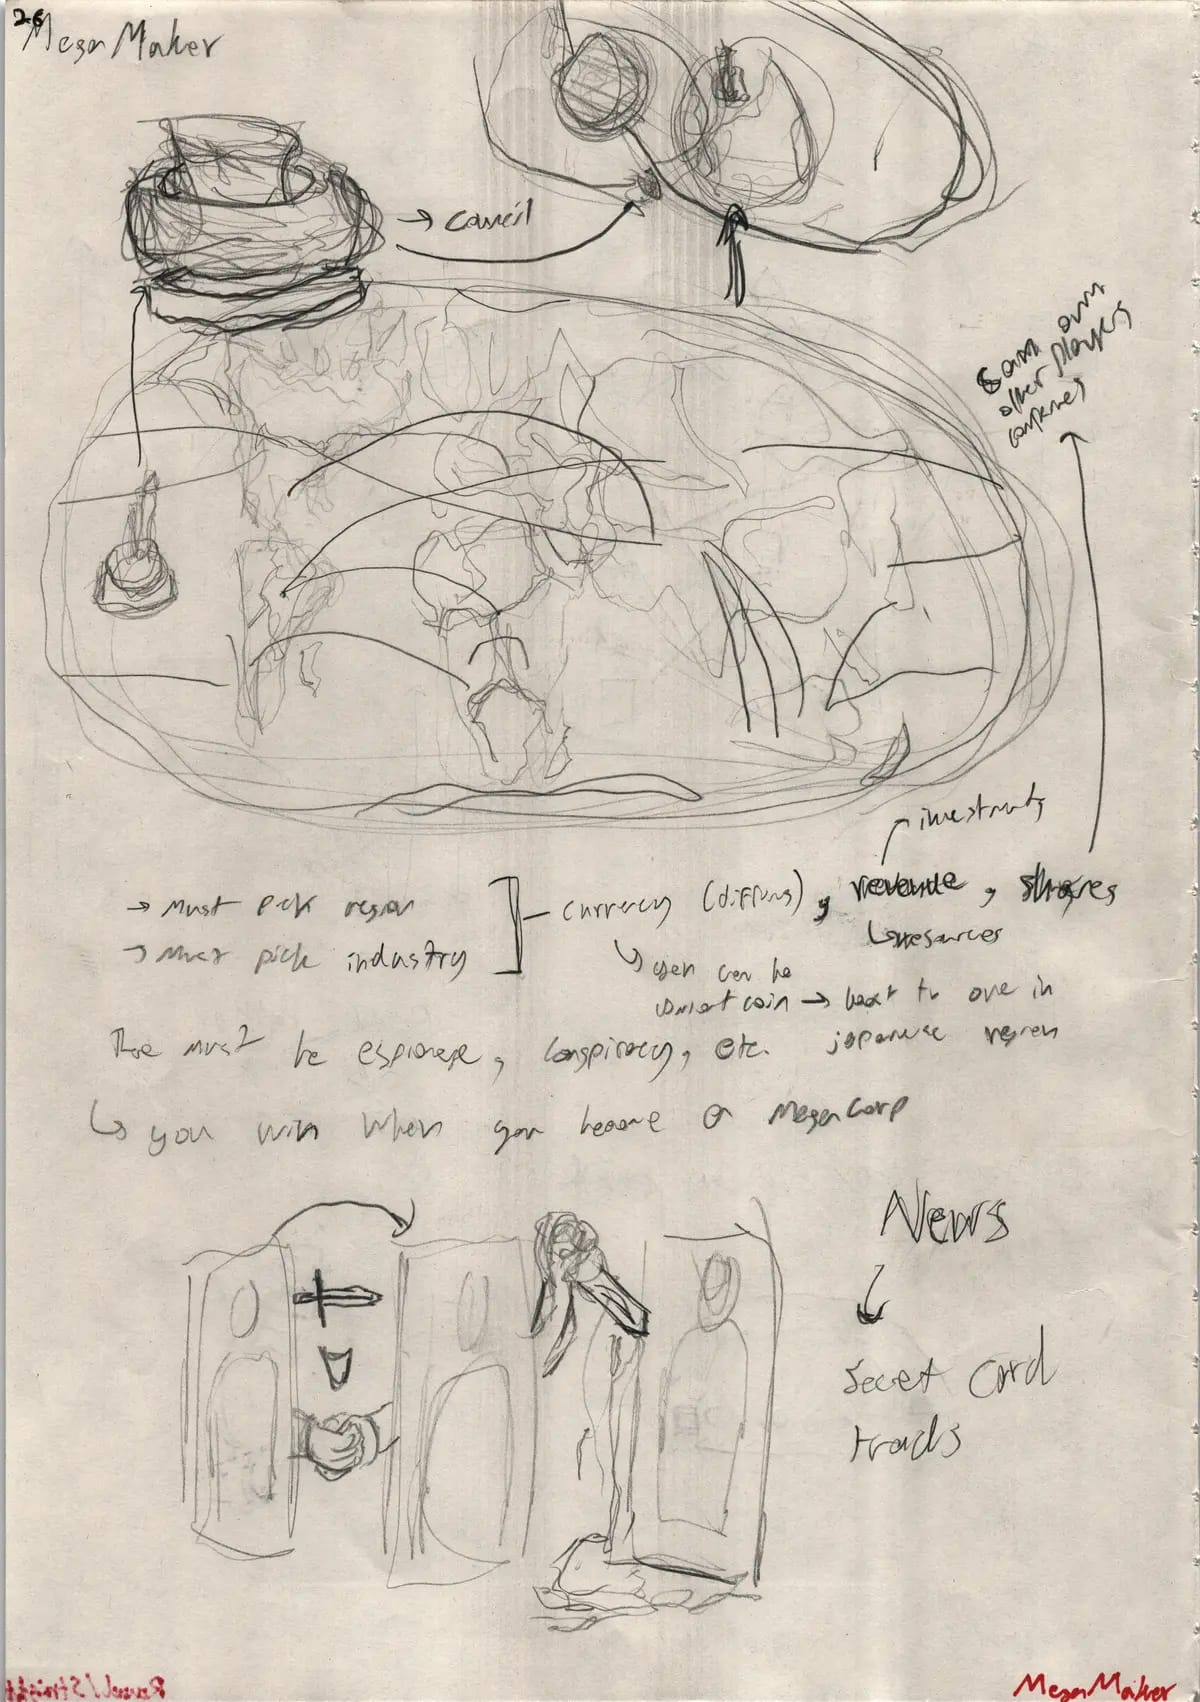 26
MegaMaker
→ Council
can own
other players
companies
→ investments
→ Must pick region
→ Must pick industry
currency (differs), revenue, shares
↳ resources
↳ yen can be
→ best to one in
japanese region
There must be espionage, conspiracy, etc.
↳ you win when you become a MegaCorp
News
Secret Card
trads
Round/Straight
MegaMaker